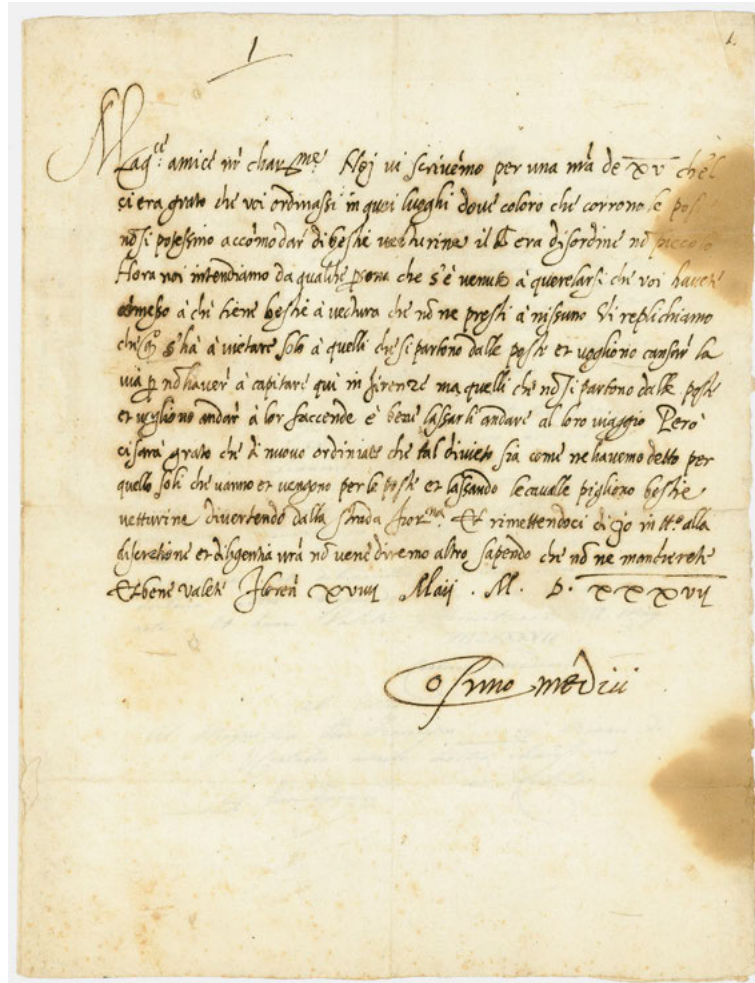 1
1.
Mag.ce amice nr char.me Noj vi scrivemo per una nrã de XV che'l
ci era grato che voi ordinassi in quei luoghi dove coloro che corrono le pos
nõ si potessino accõmodar di bestie vecturine il era disordine nõ piccolo
Hora noi intendiamo da qualche psona che s'è venuto à querelarsi che voi havete
comesso à chi tiene bestie à vectura che nõ ne presti à nissuno Vi replichiamo
che s'hà à vietare solo à quelli che si partono dalle poste et vogliono cansar la
via p nõ haver à capitare qui in firenze ma quelli che nõ si partono dalle poste
et vogliono andar à lor faccende è bene lassarli andare al loro viaggio Però
ci sarà grato che di nuovo ordiniate che tal divieto sia come ne havemo detto per
quello soli che vanno et vengono per le poste et lassando le cavalle pigliono bestie
vetturine divertendo dalla strada fior.na Et rimettendoci di ciò in tt.o alla
discretione et diligentia vrã nõ vene diremo altro sapendo che nõ ne mancherete
Et bene valete Floreñ XVIIIJ Maij . M. D. XXXVIJ
Cosimo medici